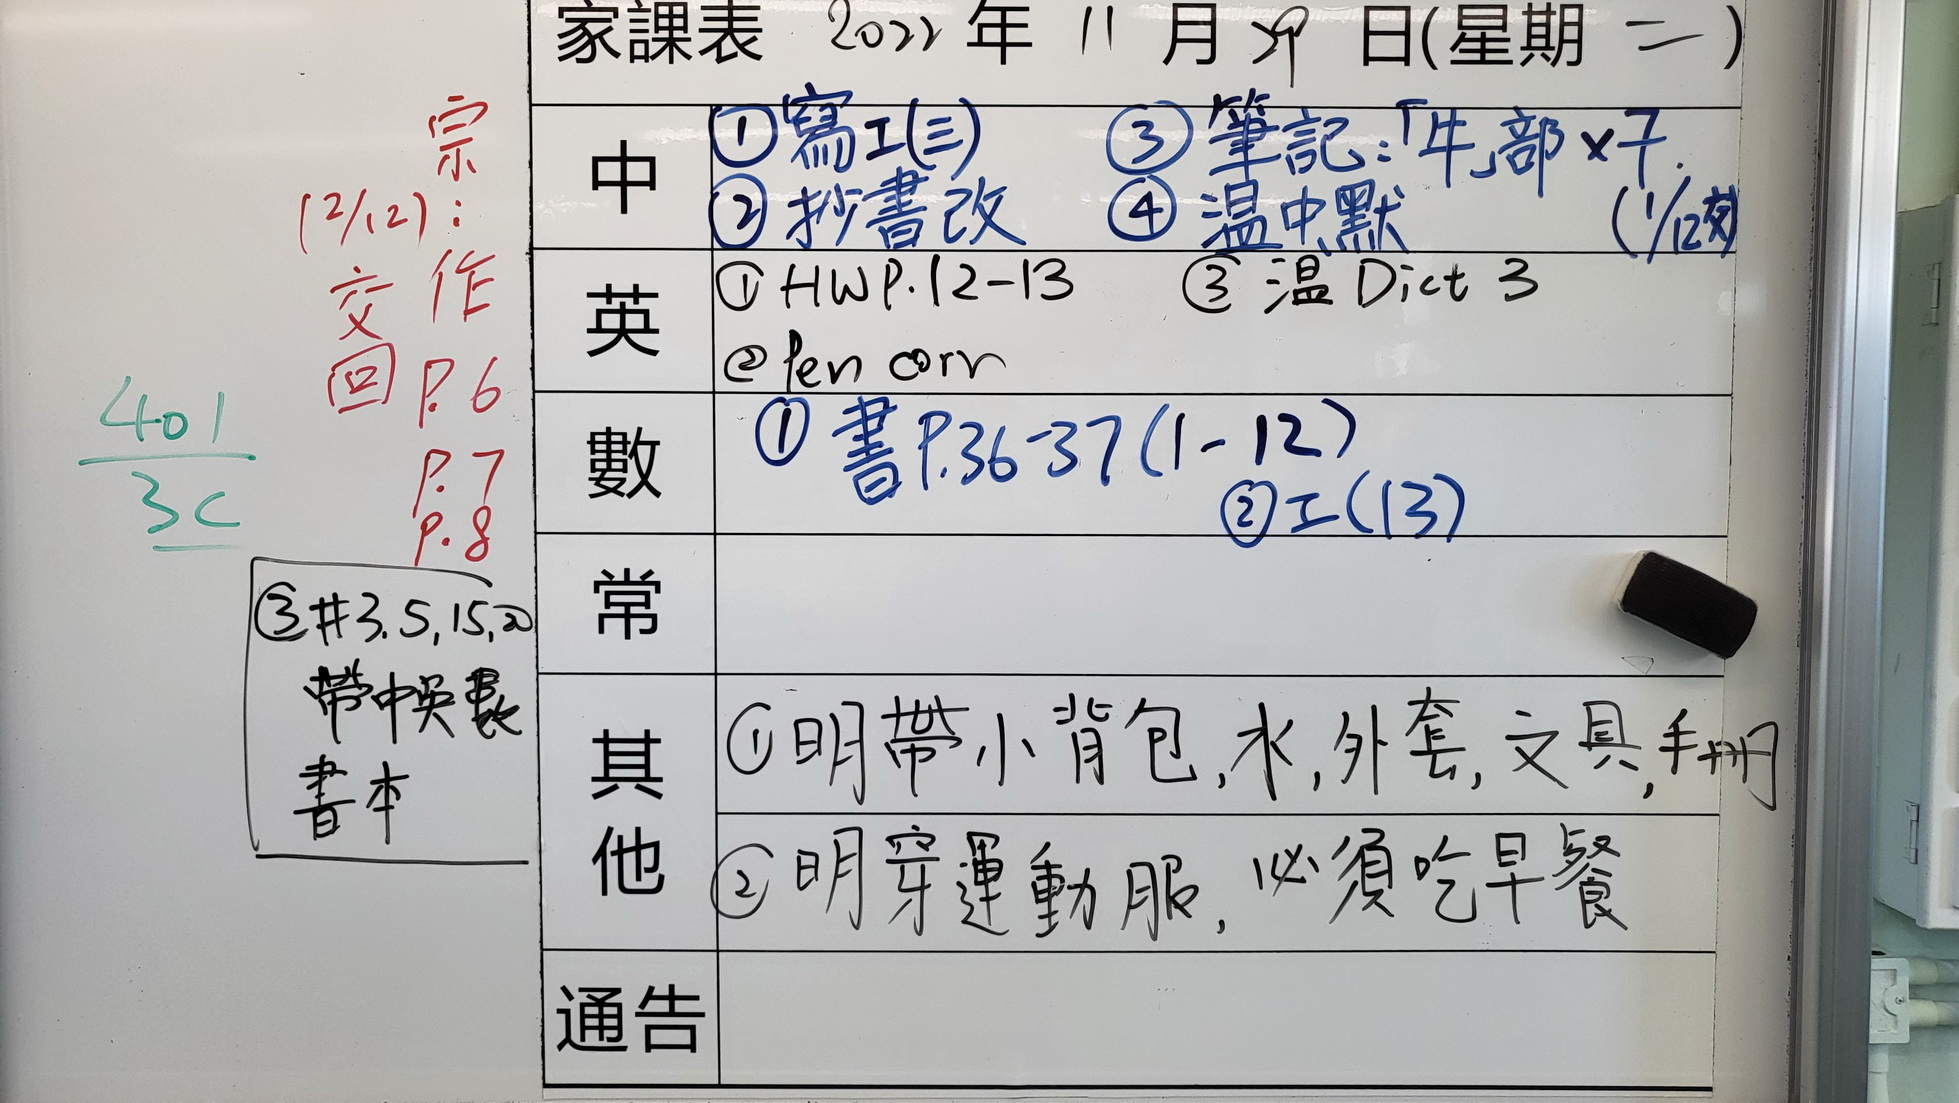 家課表 2022年 11月 29日(星期二)
中
①寫工(三) ③筆記:「牛」部×7.
②抄書改 ④温中默 (1/12交)
英
①HWP.12-13 ③温 Dict 3
②Pen corr
數
①書P.36-37(1-12)
②工(13)
常
其他
①明帶小背包,水,外套,文具,手冊
②明穿運動服,必須吃早餐
通告
宗
(2/12):
交 作
回 P.6
P.7
P.8
401
3C
③#3.5,15,20
帶中英數
書本